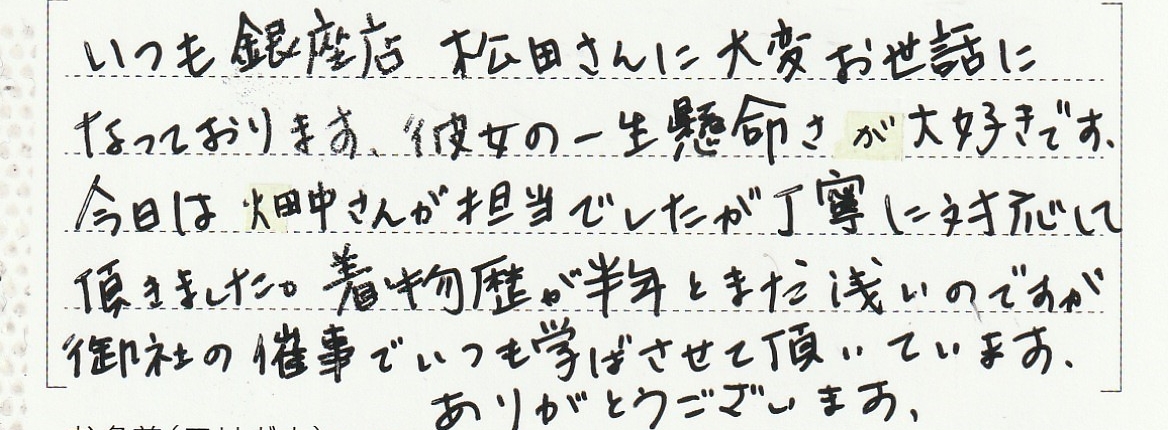 いつも銀座店 松田さんに大変お世話に
なっております、彼女の一生懸命さが大好きです、
今日は畑中さんが担当でしたが丁寧に対応して
頂きました。着物歴が半年とまだ浅いのですが
御社の催事でいつも学ばさせて頂いています、
ありがとうございます、